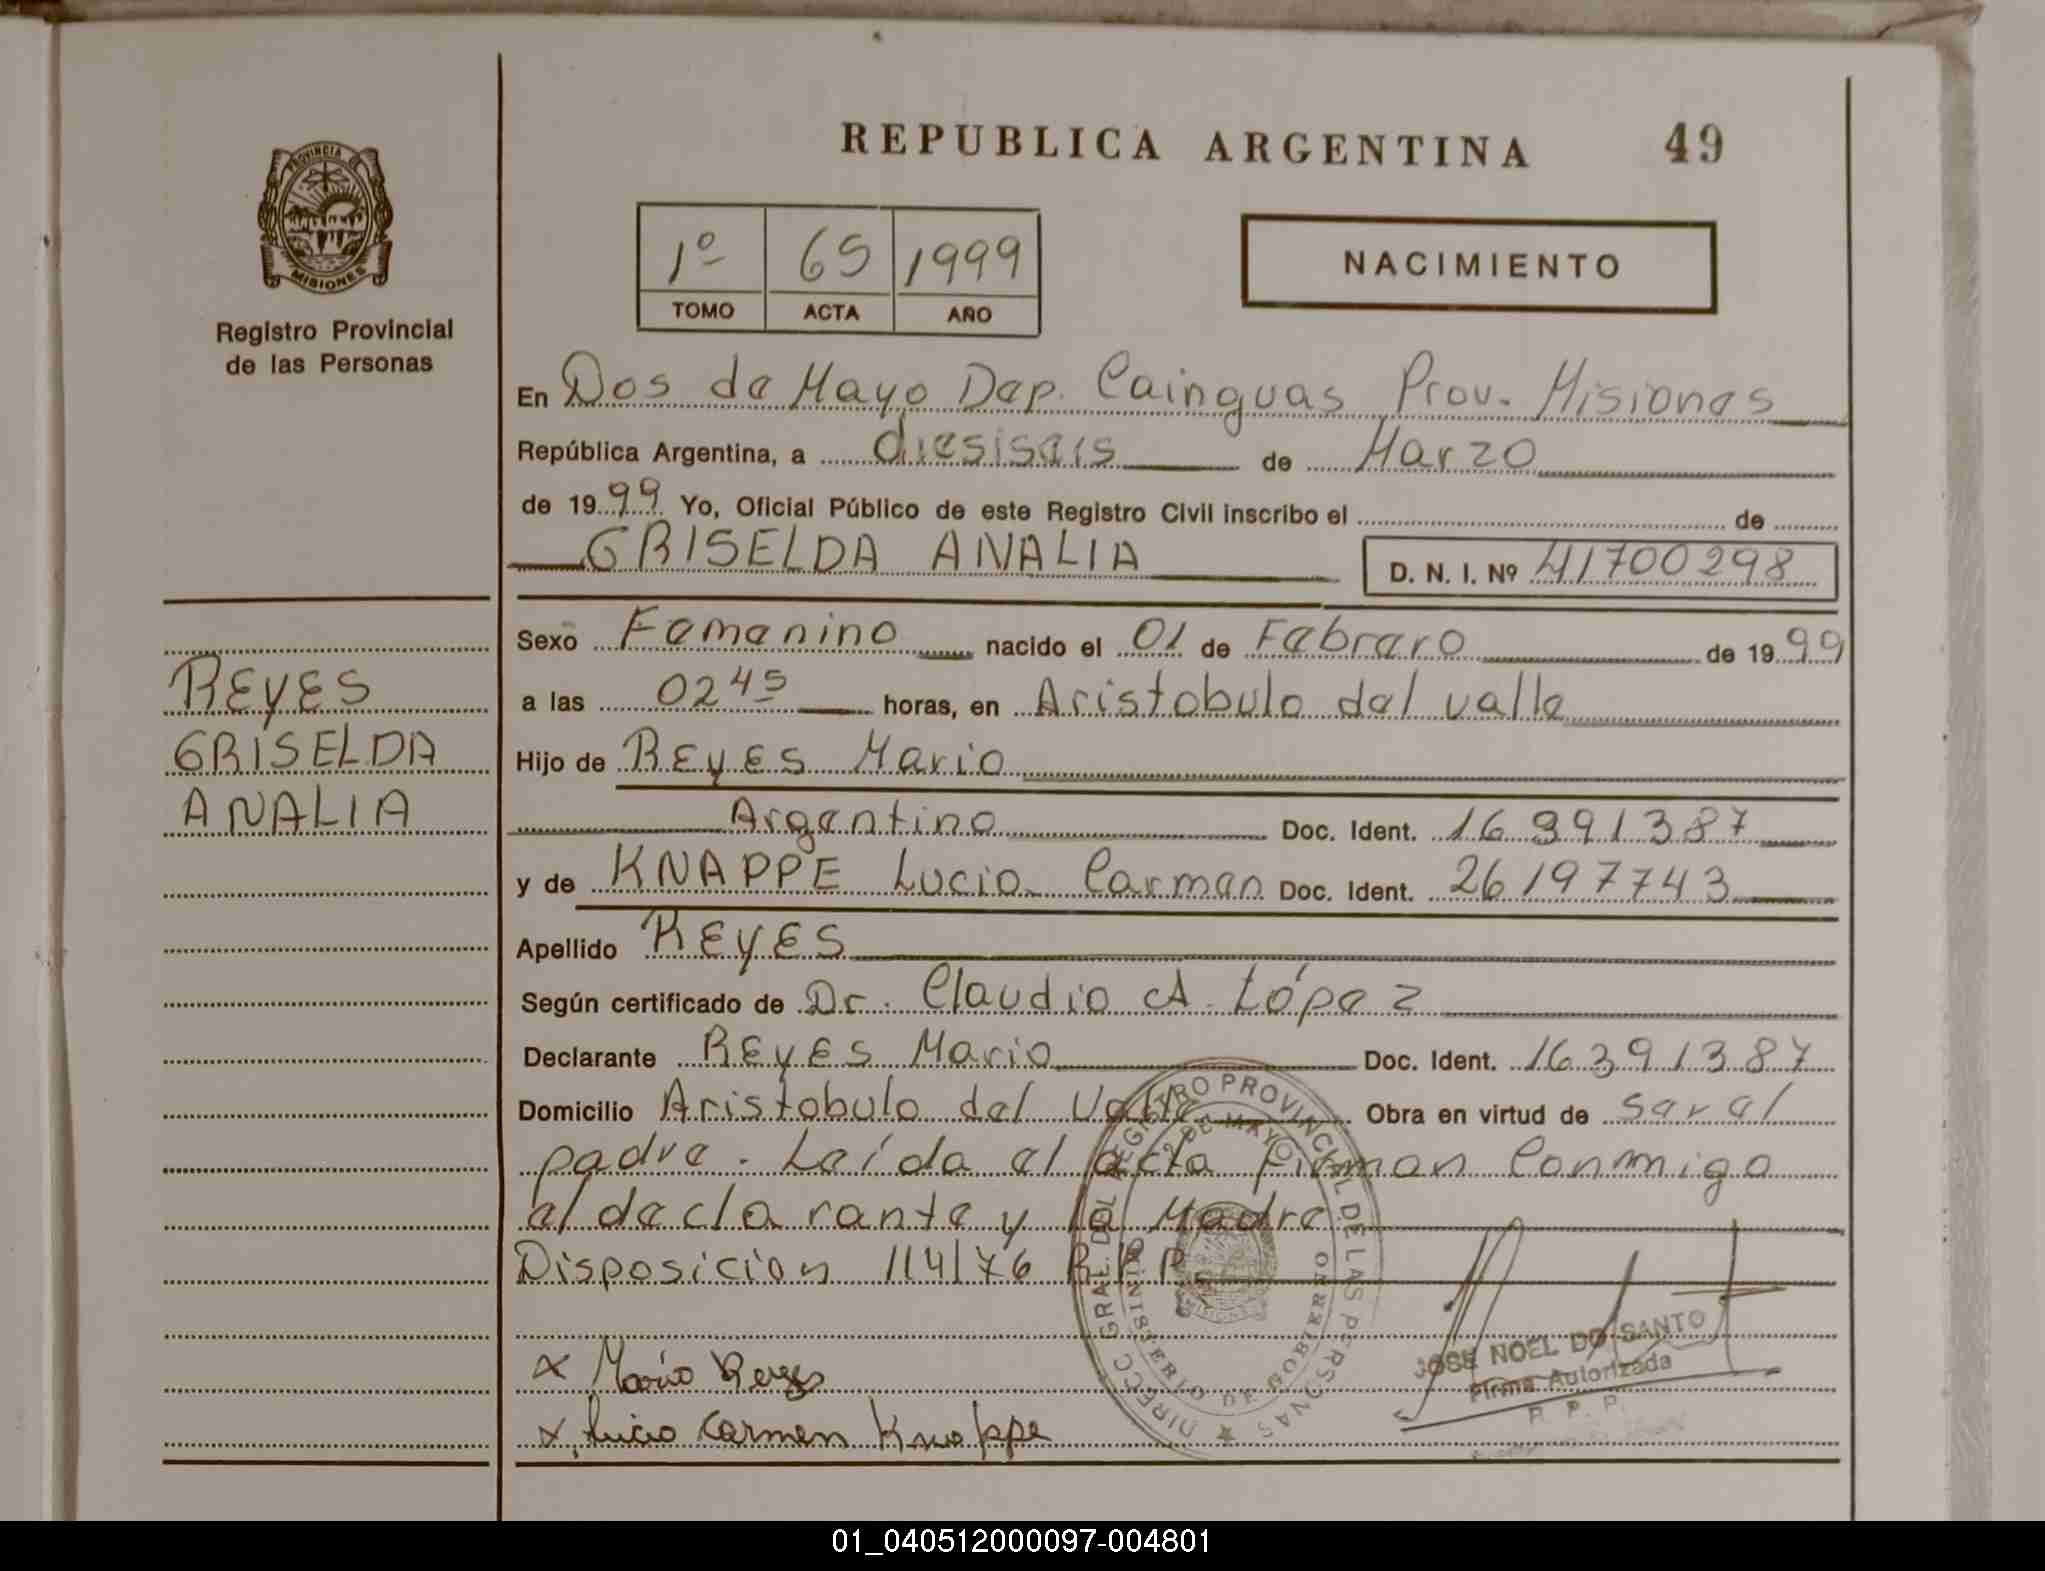 REPUBLICA ARGENTINA 49
PROVINCIA DE
MISIONES
Registro Provincial
de las Personas
1º 65 1999
TOMO ACTA AÑO
NACIMIENTO
En Dos de Mayo Dep. Cainguas Prov. Misiones
República Argentina, a diesiseis de Marzo
de 1999 Yo, Oficial Público de este Registro Civil inscribo el de
GRISELDA ANALIA D. N. I. Nº 41700298
Sexo Femenino nacido el 01 de Febrero de 1999
a las 02 45 horas, en Aristobulo del valle
Hijo de REYES Mario
Argentino Doc. Ident. 16 391387
y de KNAPPE Lucia Carmen Doc. Ident. 26197743
Apellido REYES
Según certificado de Dr. Claudio A. López
Declarante REYES Mario Doc. Ident. 16391387
Domicilio Aristobulo del Valle Obra en virtud de ser el
padre. Leída el acta firman Conmigo
el declarante y la Madre
Disposicion 114/76 R.P.P.
x Mario Reyes
x Lucia Carmen Knappe
REYES
GRISELDA
ANALIA
DIRECC GRAL. DEL REGISTRO PROVINCIAL DE LAS PERSONAS
2 DE MAYO
MINISTERIO DE GOBIERNO
JOSE NOEL DO SANTO
Firma Autorizada
R. P. P.
01_040512000097-004801